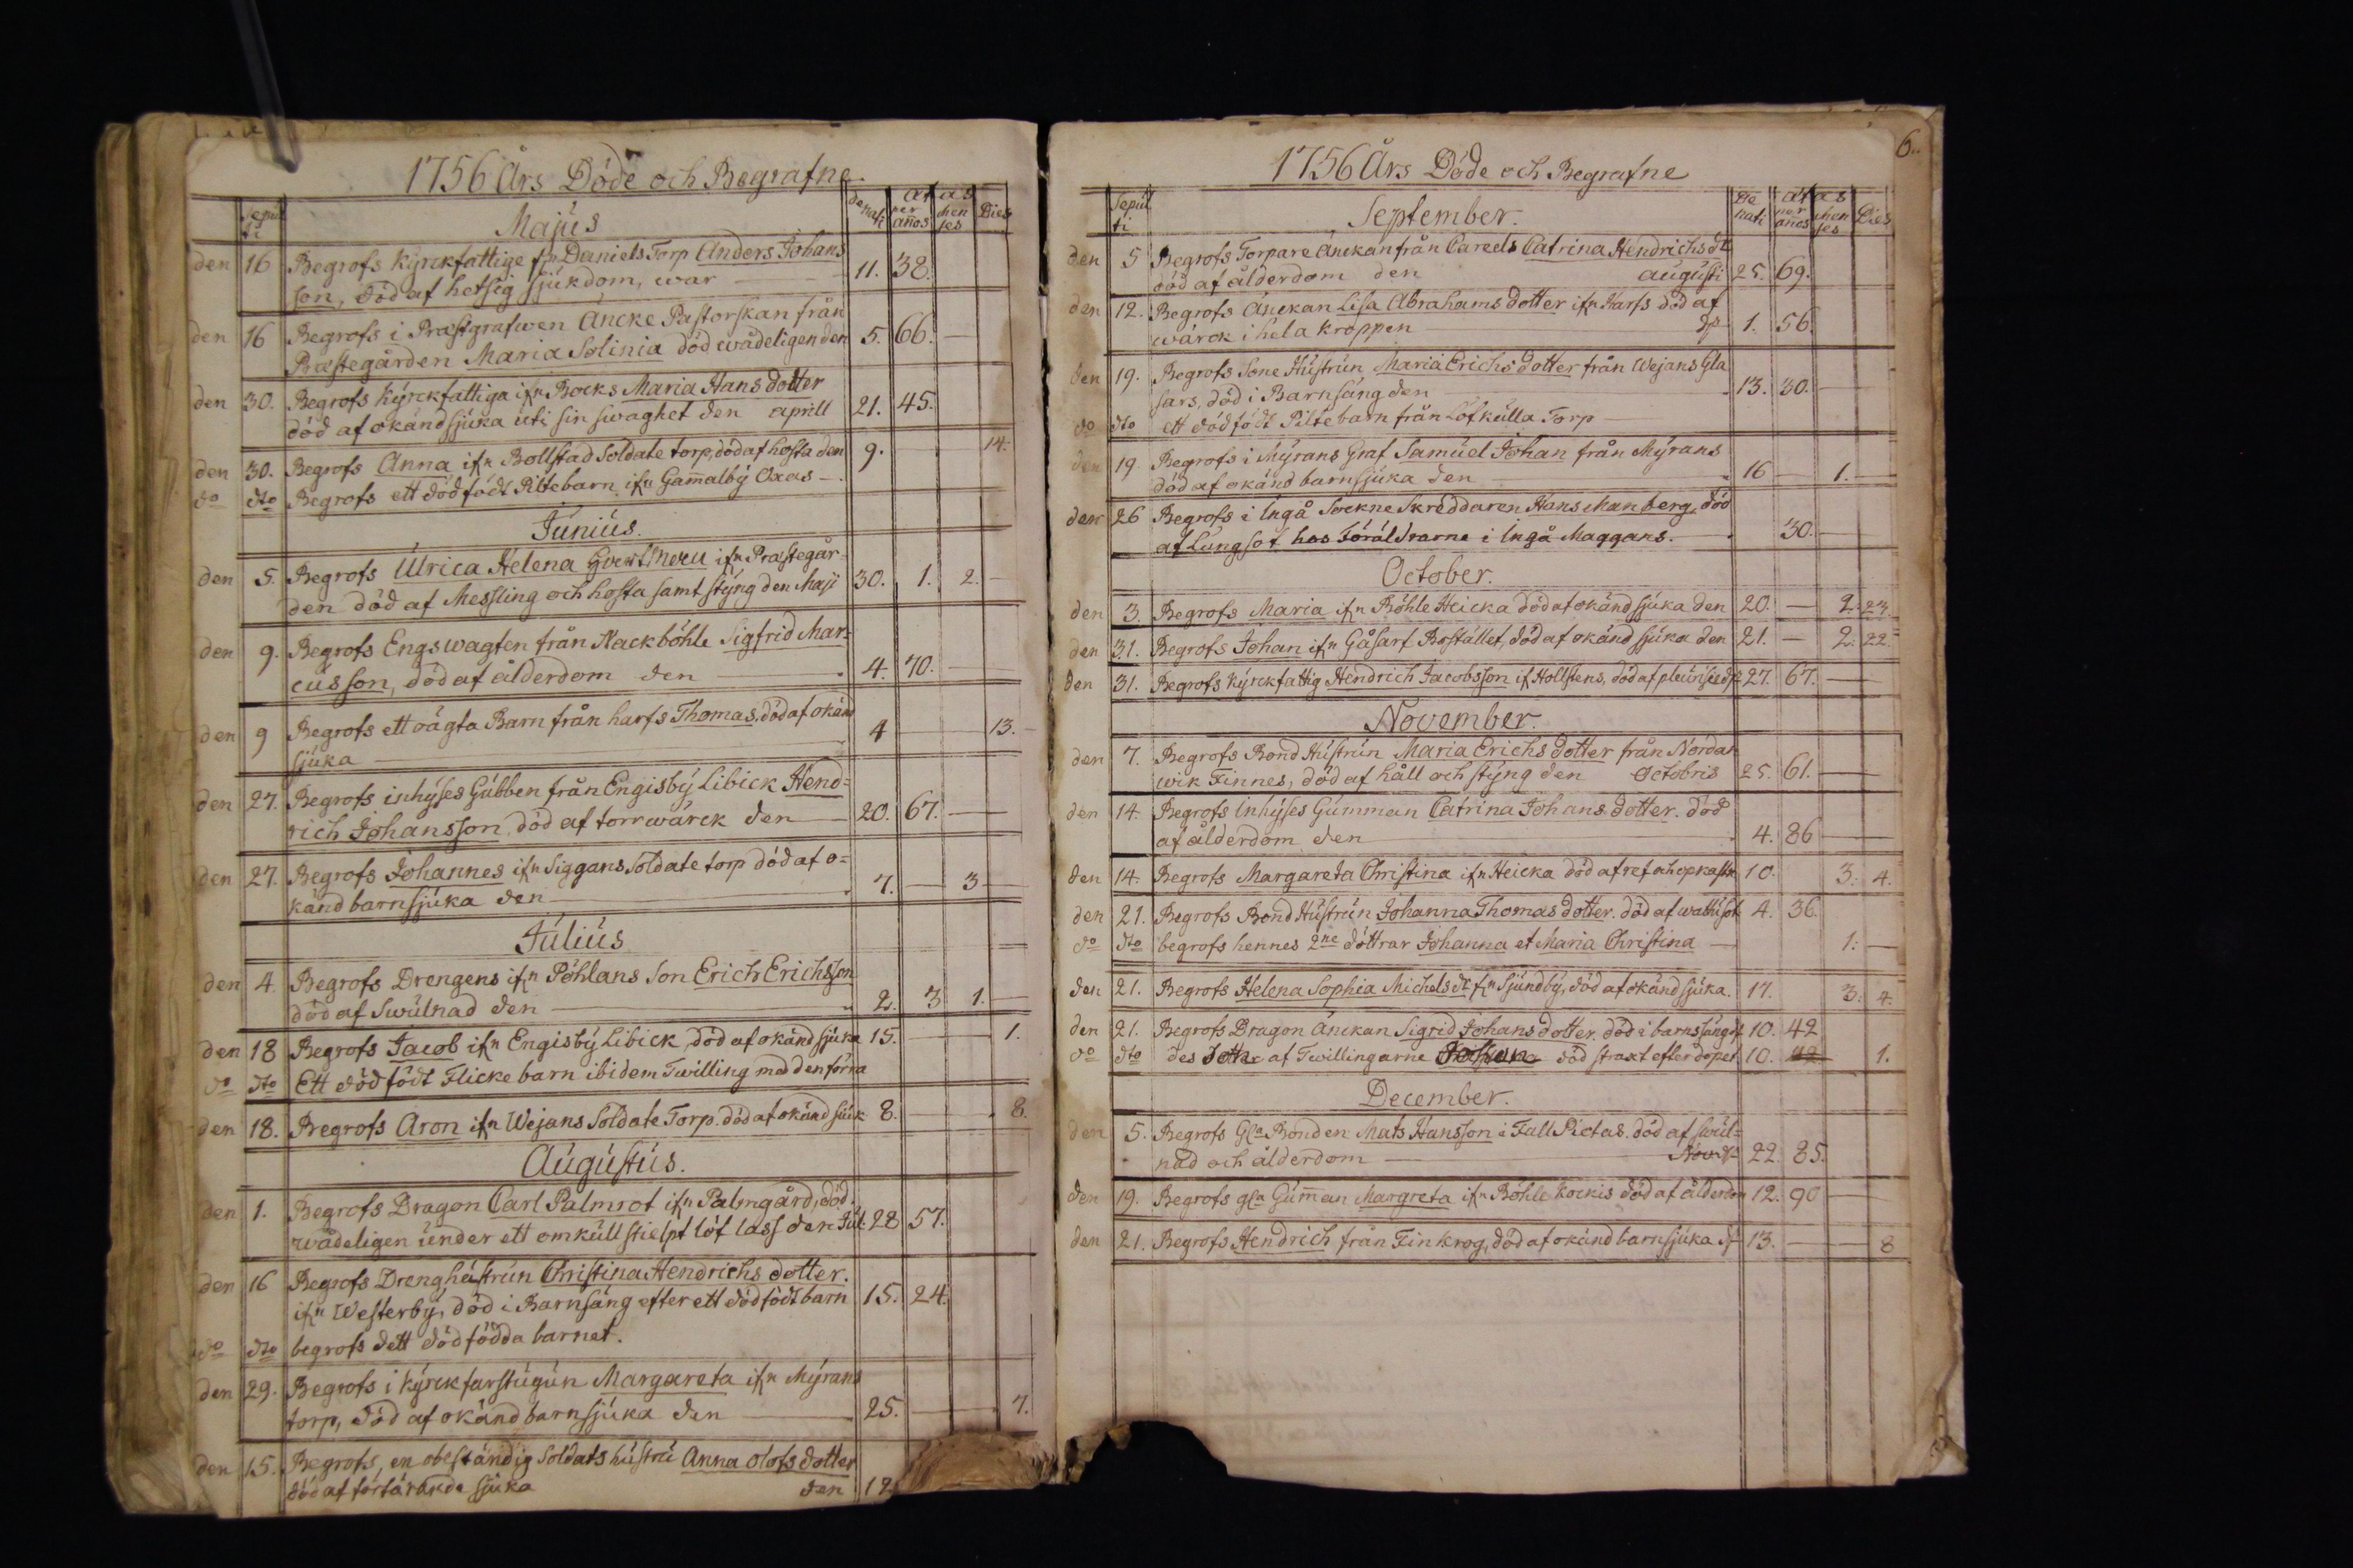 1756 Års Döde och Begrafne
Sepul denati ætas
ti per años men ses Dies
Majus
den 16 Begrofs Kyrckfattige fr Daniels Torp Anders Johans
son, död af hetsig sjukdom, war 11. 38.
den 16 Begrofs i Præstgrafwen Äncke Pastorskan från
Præstegården Maria Solinia död wådeligen den 5. 66.
den 30. Begrofs Kyrckfattiga ifrn Bocks Maria Hans dotter
död af okänd sjuka uti sin swaghet den aprill 21. 45.
den 30. Begrofs Anna ifrn Bollstad Soldate torp, död af hosta den 9. 14.
do dto Begrofs ett dödfödt Piltebarn ifrn Gam̄alby Oxas
Junius.
den 5. Begrofs Ulrica Helena ifrn Præstegår-
den död af Messling och hosta samt styng den Maji 30. 1. 2.
den 9. Begrofs Engswagten från Nackböhle Sigfrid Mar-
cusson, död af ålderdom den 4. 70.
den 9 Begrofs ett oägta Barn från harfs Thomas. död af okänd
sjuka 4 13.
den 27. Begrofs inhyses Gubben från Engisby Libick Hend=
rich Johansson, död af torrwärck den 20. 67.
den 27. Begrofs Johannes ifrn Siggans Soldate torp död af o=
känd barnsjuka den 7. 3
Julius
den 4. Begrofs Drengens ifrn Pöhlans Son Erich Erichsson
död af Swulnad den 2. 3 1.
den 18 Begrofs Jacob ifrn Engisby Libick, död af okänd sjuka 15. 1.
do dto Ett dödfödt Flickebarn ibidem Twilling med den förra
den 18. Begrofs Aron ifrn Wejans Soldate Torp. död af okänd siuk 8. 8.
Augustus.
den 1. Begrofs Dragon Carl Palmrot ifrn Palmgård, död.
wådeligen under ett omkullstielpt löf lass den Jul: 28 57.
den 16 Begrofs Drenghustrun Christina Hendrichs dotter.
ifrn Westerby, död i Barnsäng efter ett dödfödt barn 15. 24.
do dto begrofs dett dödfödda barnet.
den 29. Begrofs i Kyrckfarstugun Margareta ifrn Myrans
torp, död af okänd barnsjuka den 25. 7.
den 15. Begrofs, en obeständig Soldats hustru Anna Olofs dotter
död af förtärande sjuka den 12
6.
1756 Års Döde och Begrafne
Sepul De ætas
ti nati per años men ses Dies
September.
den 5 Begrofs Torpare Änckan från Careels Catrina Hendrichs dt
död af ålderdom den augusti 25. 69.
den 12. Begrofs Änckan Lisa Abrahams dotter ifrn Harfs död af
wärck i hela kroppen do 1. 56.
den 19. Begrofs Sone Hustrun Maria Erichs dotter från Wejans Gla
sars, död i Barnsäng den 13. 30.
do dto ett dödfödt Piltebarn från Löfkulla Torp
den 19 Begrofs i Myrans Graf Samuel Johan från Myrans
död af okänd barnsjuka den 16 1.
den 26 Begrofs i Ingå Sockne Skräddaren Hans Manberg, död
af Lungsot hos Föräldrarne i Ingå Maggans. 30.
October.
den 3. Begrofs Maria ifrn Böhle Heicka död af okänd sjuka den 20. 2. 23.
den 31. Begrofs Johan ifrn Gåsarf Bostället, död af okänd sjuka den 21. 2. 22.
den 31. Begrofs Kyrckfattig Hendrich Jacobsson if Hollstens, död af pleurisie d 27. 67.
November.
den 7. Begrofs Bond Hustrun Maria Erichs dotter från Nordan
wik Finnes, död af håll och styng den Octobris 25. 61.
den 14. Begrofs Inhyses Gumman Catrina Johans dotter. död
af ålderdom den 4. 86
den 14. Begrofs Margareta Christina ifrn Heicka död af ref 10. 3. 4.
den 21. Begrofs Bond Hustrun Johanna Thomas dotter. död af wattusot 4. 36.
do dto begrofs hennes 2ne döttrar Johanna et Maria Christina 1.
den 21. Begrofs Helena Sophia Michels dt frn Sjundby, död af okänd sjuka. 17. 3. 4.
den 21. Begrofs Dragon Änckan Sigrid Johans dotter. död i barnsäng 10. 42
do dto des af Twillingarne död straxt efter döpet 10. 42 1.
December.
den 5. Begrofs Gla Bonden Mats Hansson i Fall Pictas. död af swul=
nad och ålderdom Nov: 22. 85.
den 19. Begrofs gla Gum̄an Margreta ifrn Böhle Kockis död af ålderdom 12. 90
den 21. Begrofs Hendrich från Finkrog, död af okänd barnsjuka d 13. 8